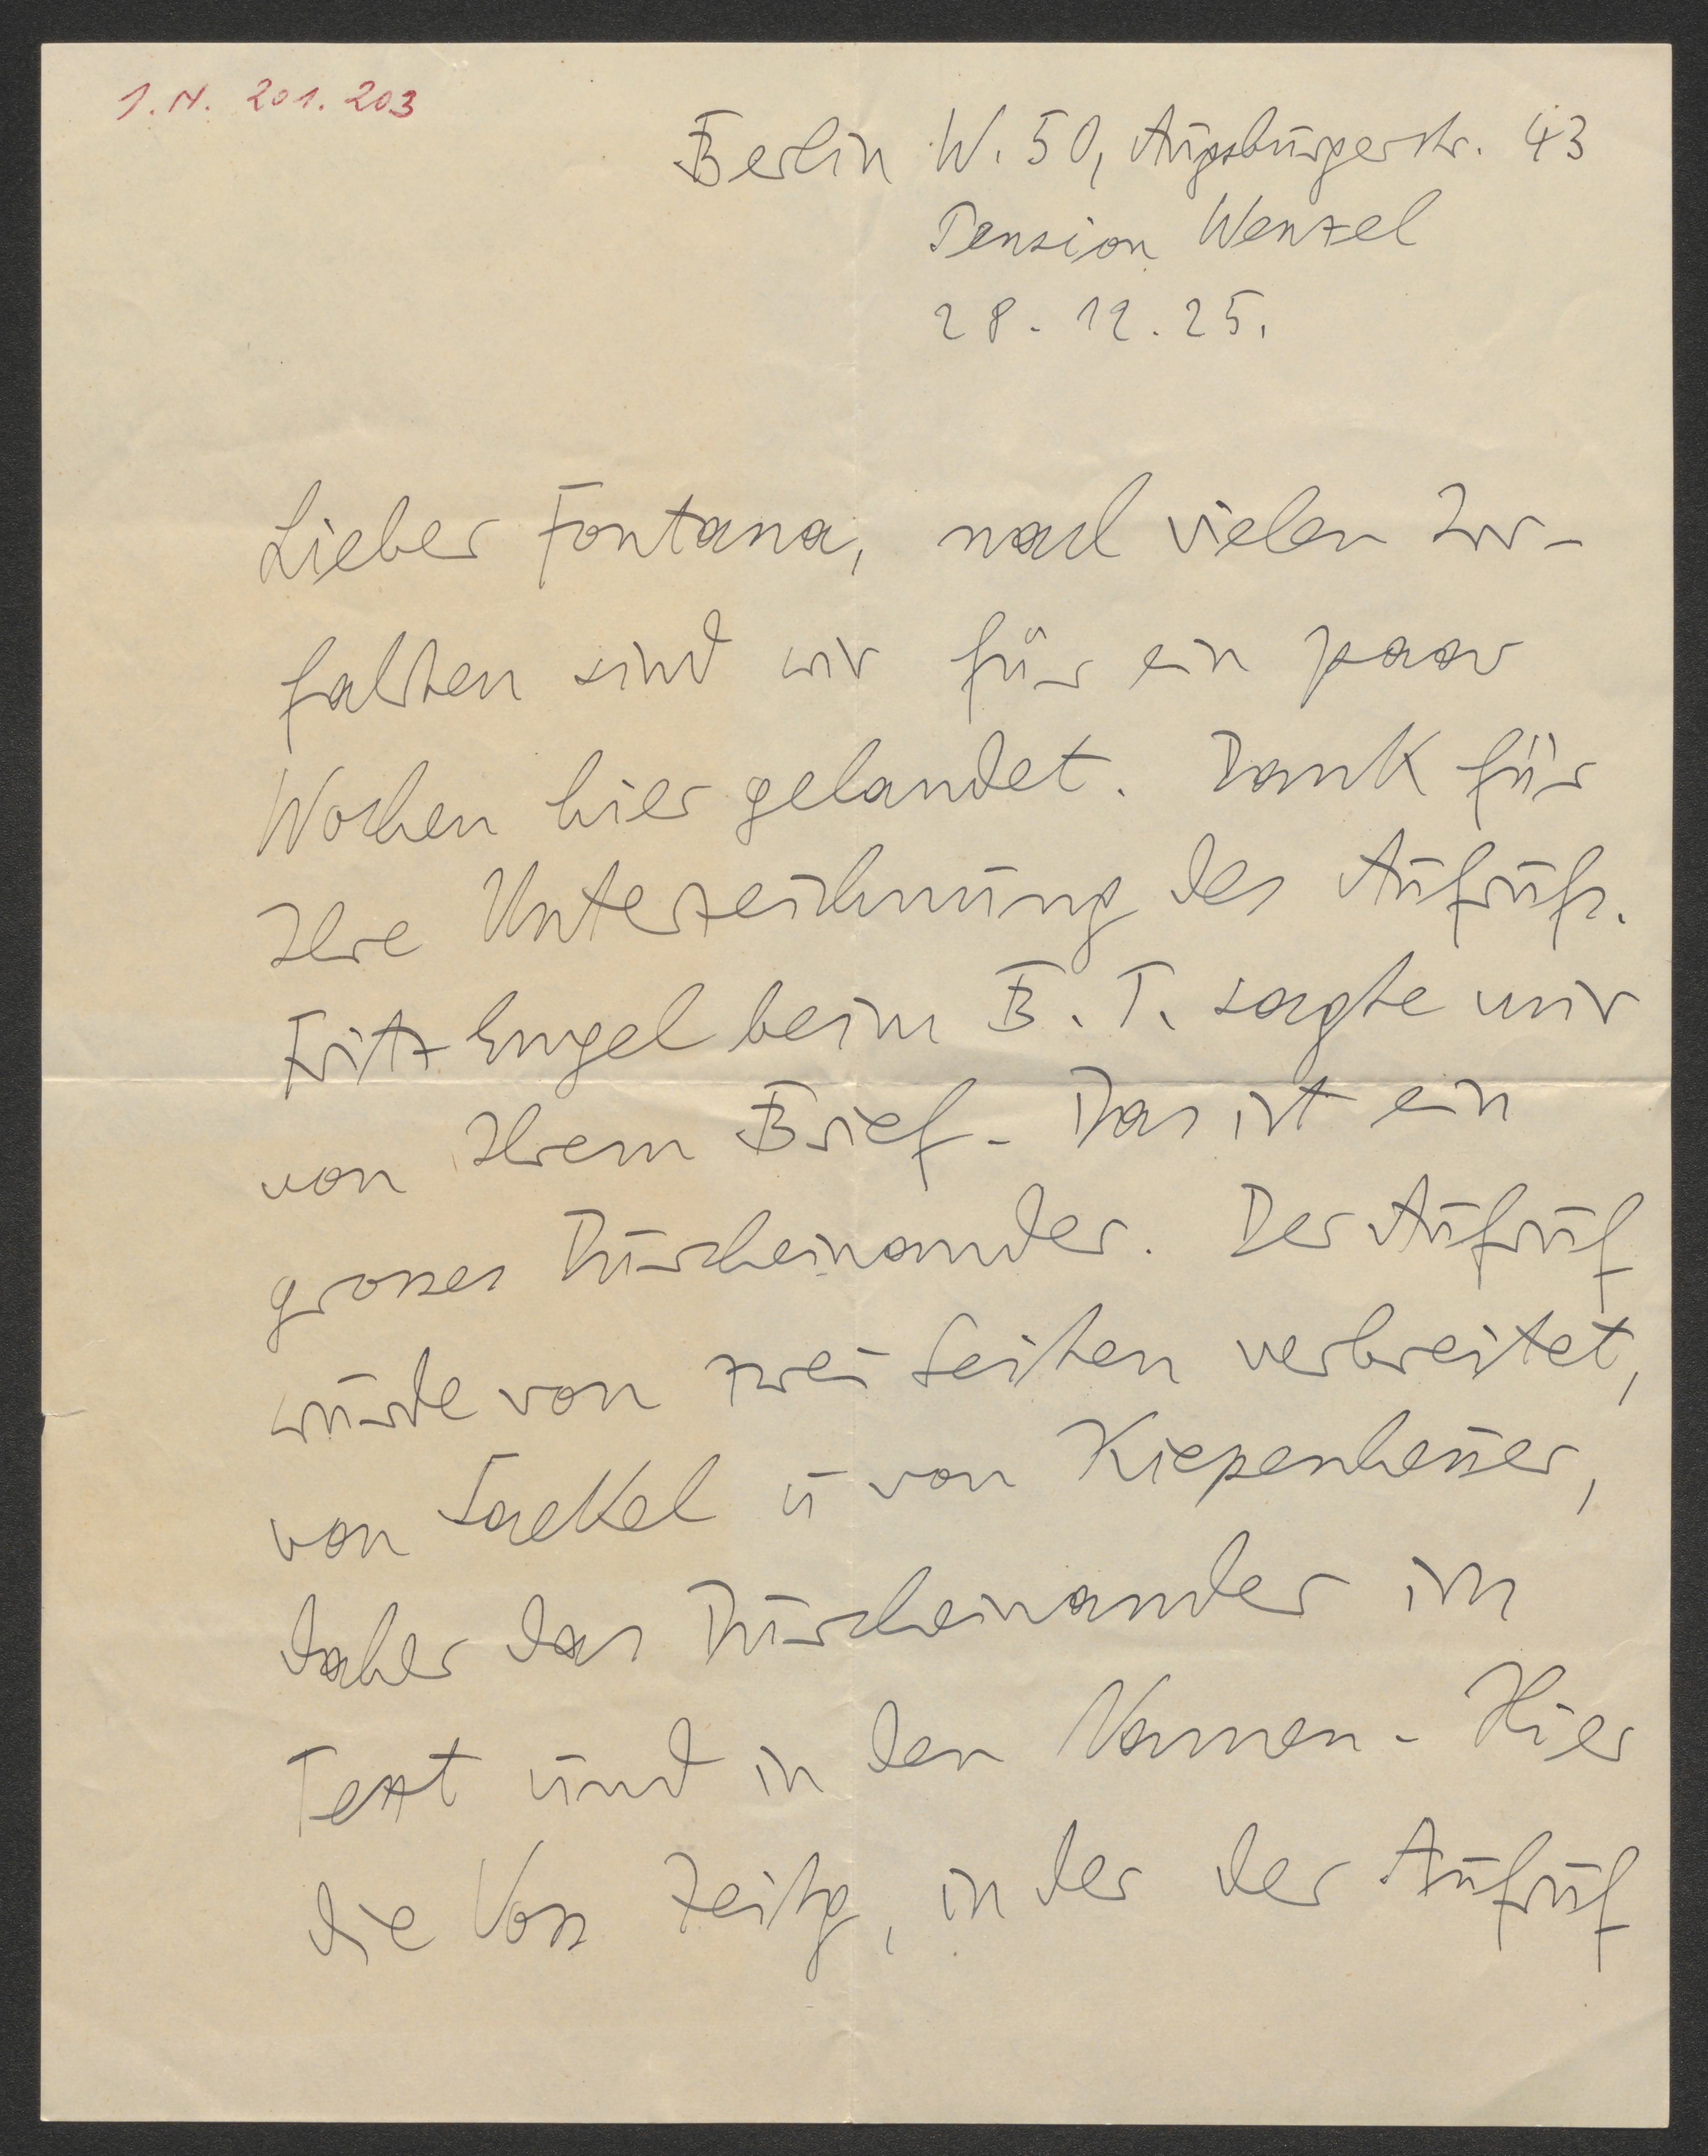 I.N. 201.203
Berlin W. 50, Augsburgerstr. 43
Pension Wenzel
28. 12. 25.
Lieber Fontana, nach vielen Irr-
fahrten sind wir für ein paar
Wochen hier gelandet. Dank für
Ihre Unterzeichnung des Aufrufs.
Fritz Engel beim B. T. sagte mir
von Ihrem Brief - Das ist ein
grosses Durcheinander. Der Aufruf
wurde von zwei Seiten verbreitet,
von u von Kiepenheuer,
daher das Durcheinander im
Text und in den Namen - Hier
die Voss Zeitg, in der der Aufruf